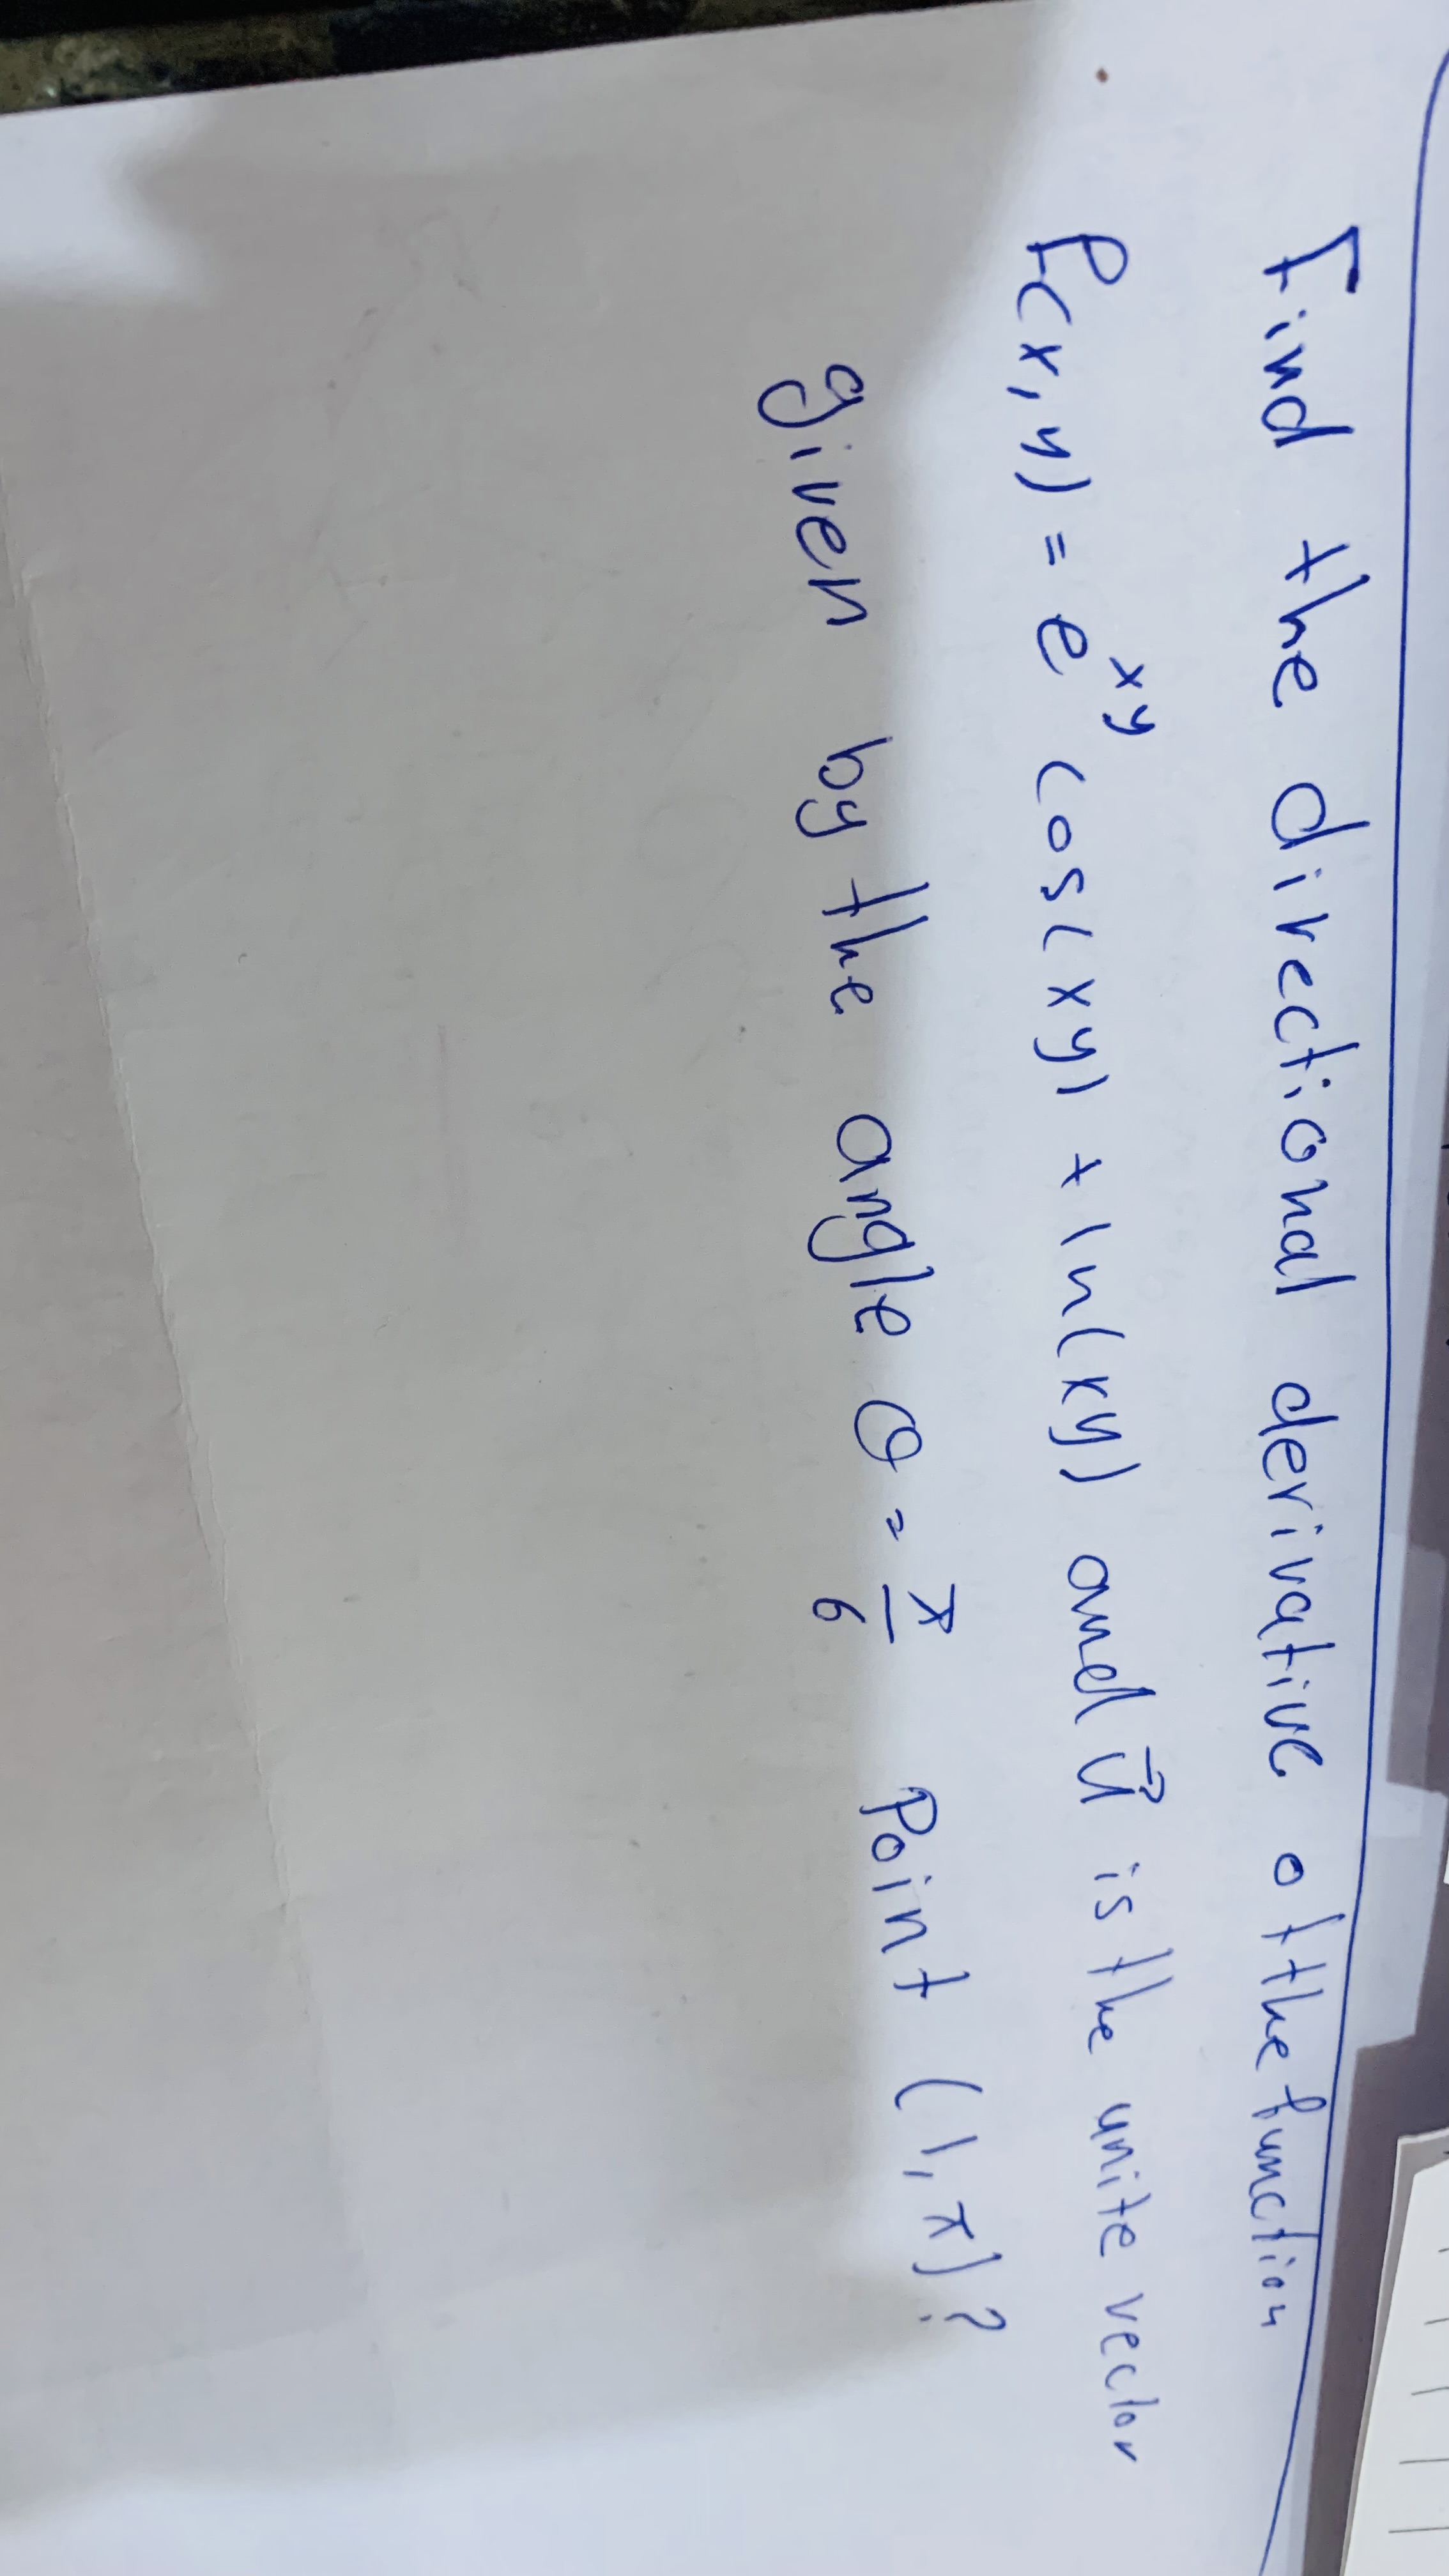 Find the directional derivative of the function
f(x,y) = e^xy cos(xy) + ln(xy) and u⃗ is the unite vector
given by the angle θ = π/6 Point (1,π)?